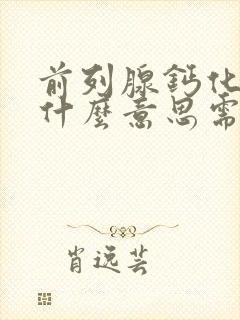 前列腺鈣化
什麼意思需
肖逸芸